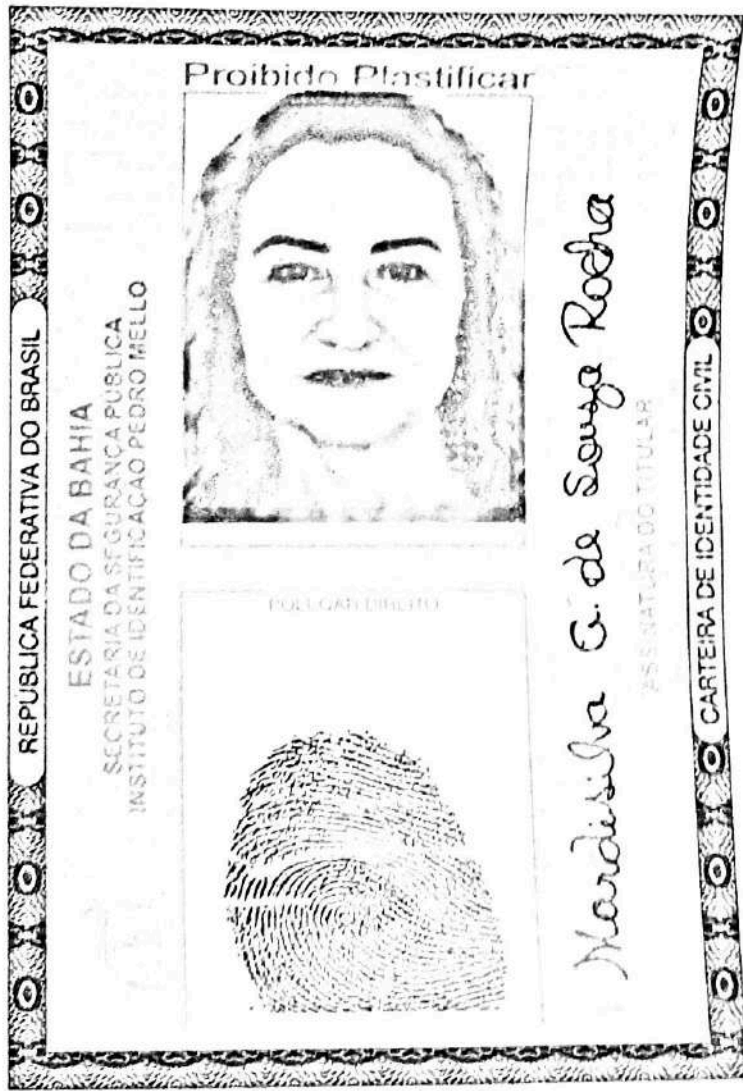 REPÚBLICA FEDERATIVA DO BRASIL
ESTADO DA BAHIA
SECRETARIA DA SEGURANÇA PUBLICA
INSTITUTO DE IDENTIFICAÇÃO PEDRO MELLO
Proibido Plastificar
POLEGAR DIREITO
Mardisilva G. de Souza Rocha
ASSINATURA DO TITULAR
CARTEIRA DE IDENTIDADE CIVIL